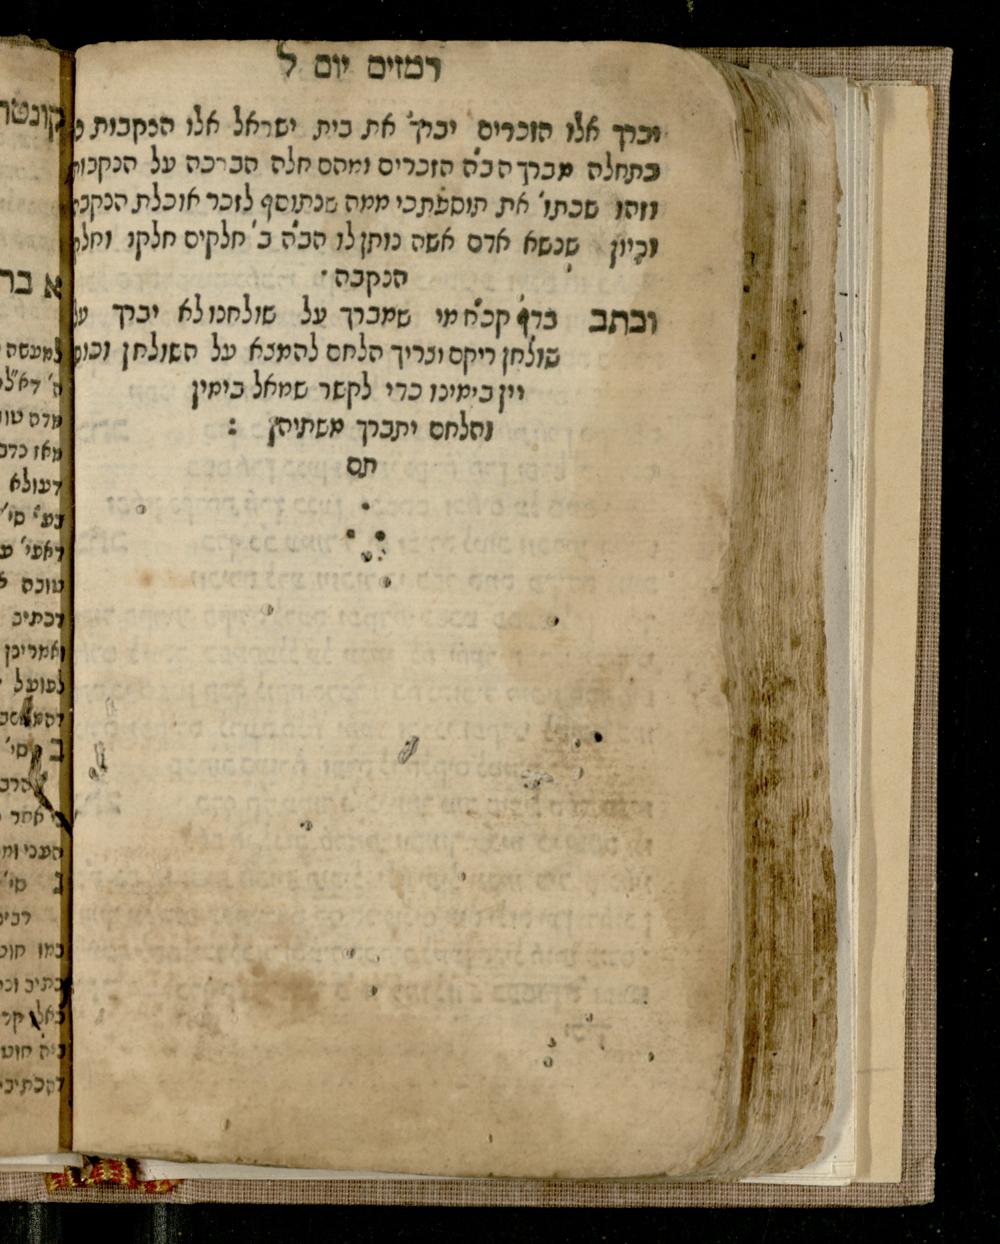 רמזים יום ל
יברך אלו הזכרים יברך את בית ישראל אלו הנקבות
בתחלה מברך הב"ה הזכרים ומהם חלה הברכה על הנקבות
וזהו שכתו' את תוספת כי ממה שנתוסף לזכר אוכלת הנקבה
וכיון שנשא אדם אשה נותן לו הב"ה ב' חלקים חלקו וחלק
הנקבה
וכתב בדף קכ"ח מי שמברך על שולחנו לא יברך על
שולחן ריקם וצריך הלחם להמצא על השולחן וכוס
יין בימינו כדי לקשר שמאל בימין
והלחם יתברך משתיהן :
תם
קונטר
א בר
למעשה
מדם
מאז
דעולא
בע' סי'
טובה
דכתיב
ואמרינן
לפועל
ב סי'
אחר
ג סי'
כמו חוט
כתיב
חוט
דהכתיב